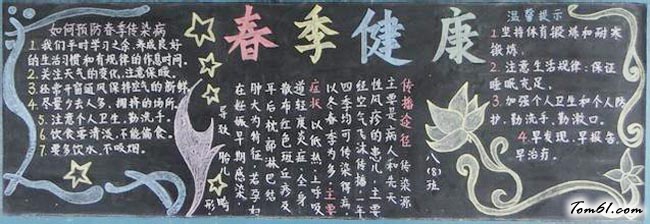 如何预防春季传染病
1.我们平时学习之余,养成良好
的生活习惯和有规律的作息时间.
2.关注天气的变化,注意保暖。
3.经常开窗通风保持空气的新鲜
4.尽量少去人多,拥挤的场所。
5.注意个人卫生,勤洗手。
6.饮食要清淡,不能偏食。
7.要多饮水,不吸烟。
春季健康
传播途径:传染源
主要是病人和先天
性风疹的患儿,主要
经空气飞沫传播,一年
四季均可传染得病,
以冬春季为多,主要
症状:以低热,上呼吸
道轻度炎症,全身
散布红色斑丘疹及
耳后枕部淋巴结
肿大为特征,若孕妇
在妊娠早期感染,
导致胎儿畸形
八(8)班
温馨提示
1.坚持体育锻炼和耐寒
锻炼。
2.注意生活规律:保证
睡眠充足。
3.加强个人卫生和个人防
护,勤洗手,勤漱口。
4.早发现,早报告,
早治疗。
Tom61.com